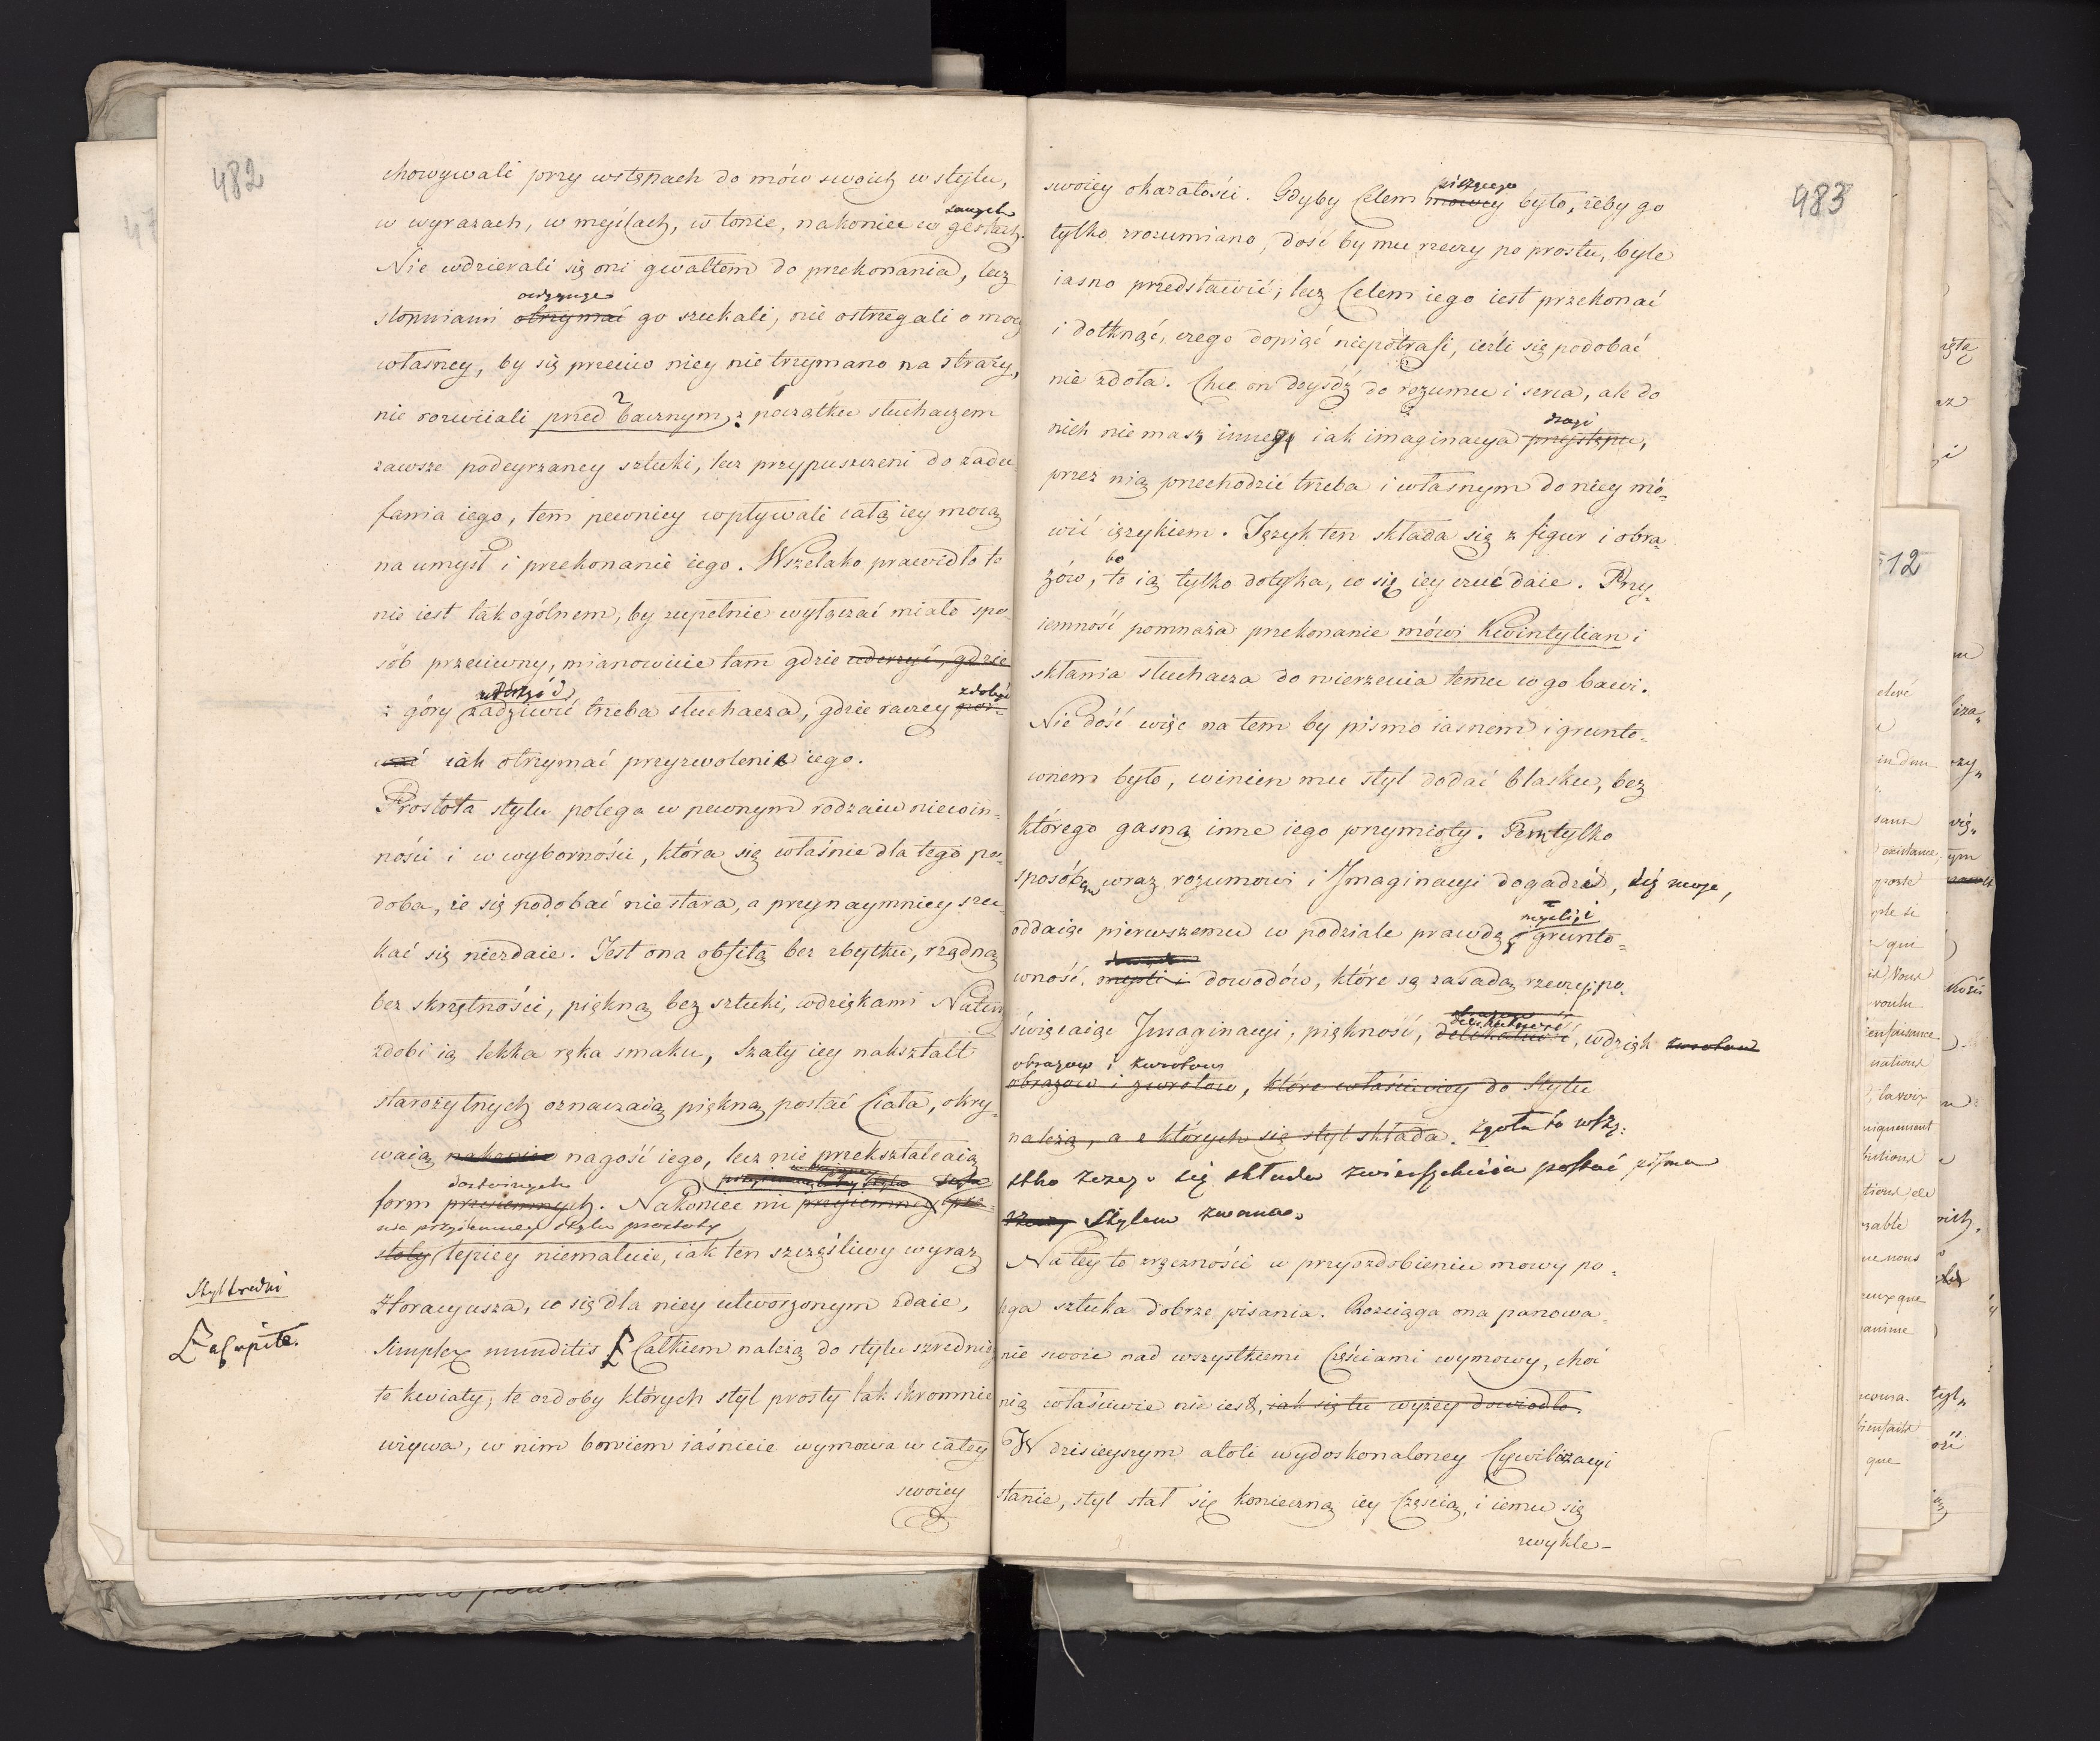 482
chowywali przy wstępach do mów swoich w stylu,
samych
w wyrazach, w myślach, w tonie, nakoniec w gestach.
Nie wdzierali się oni gwałtem do przekonania, lecz
stopniami otrzymać go szukali, nie ostrzegali o mocy
własney, by się przeciw niey nie trzymano na straży,
nie rozwiiali przed bacznym z początku słuchaczem
zawsze podeyrzaney sztuki, lecz przypuszczeni do zadu
fania iego, tem pewniey wpływali całą iey mocą
na umysł i przekonanie iego. Wszelako prawidło to
nie iest tak ogólnem, by zupełnie wyłączać miało spo-
sób przeciwny, mianowicie tam gdzie uderzyć, gdzie
uderzyć i
zdobyć
z góry zadziwić trzeba słuchacza, gdzie raczey por-
wać iak otrzymać przyzwolenie iego.
Prostota stylu polega w pewnym rodzaiu niewin-
ności i w wyborności, która się właśnie dla tego po-
doba, że się podobać nie stara, a przynaymniey szu-
kać się niezdaie. Jest ona obfitą bez zbytku, rządną
bez skrzętności, piękną bez sztuki, wdziękami Natury
zdobi ią lekka ręka smaku, Szaty iey nakształt
starożytnych oznaczaią piękną postać Ciała, okry-
waią nakoniec nagość iego, lecz nie przekształcaią
form przyiemnych. Nakoniec nic przyiemney pro-
stoty lepiey niemaluie, iak ten szczęśliwy wyraz
Styl średni
Horacyusza, co się dla niey utworzonym zdaie,
a Capite.
Simplex munditis Całkiem należą do stylu szrednieg
te kwiaty, te ozdoby których styl prosty tak skromnie
używa, w nim bowiem iaśnieie wymowa w całey
swoiey
483
piszącego
swoiey okazałości. Gdyby Celem mowcy było, żeby go
tylko zrozumiano, dość by mu rzeczy po prostu, byle
iasno przedstawić; lecz Celem iego iest przekonać
i dotknąć, czego dopiąć niepotrafi, ieżli się podobać
nie zdoła. Chce on doyśdź do rozumu i serca, ale do
drogi
nich niemasz inney iak imaginacya przystępu,
przez nią przechodzić trzeba i własnym do niey mó-
wić ięzykiem. Język ten składa się z figur i obra-
bo
zów, to ią tylko dotyka, co się iey czuć daie. Przy-
iemność pomnaża przekonanie mówi Kwintylian i
skłania słuchacza do wierzenia temu co go bawi.
Nie dość więc na tem by pismo iasnem i grunto-
wnem było, winien mu styl dodać blasku, bez
którego gasną inne iego przymioty. Tem tylko
sposobem wraz rozumowi i Imaginacyi dogadzać się może,
myśli i
oddaiąc pierwszemu w podziale prawdę, grunto-
wność, myśli i dowodów, które są zasadą rzeczy; po-
święcaiąc Imaginacyi, piękność, delikatność, wdzięk zwrotow
obrazow i zwrotow
obrazow i zwrotow, które właściwiey do Stylu
należą, a z których się styl składa. zgoła to wszy-
stko z czego się składa zwierzchnia postać pisma
rzeczy Stylem zwana.
Na tey to zręczności w przyozdobieniu mowy po-
lega sztuka dobrze pisania. Rozciąga ona panowa-
nie swoie nad wszystkiemi Częściami wymowy, choć
nią właściwie nie iest, iak się tu wyżey dowiodło.
W dzisieyszym atoli wydoskonaloney Cywilizacyi
stanie, styl stał się konieczną iey Częścią, i iemu się
zwykle-
12